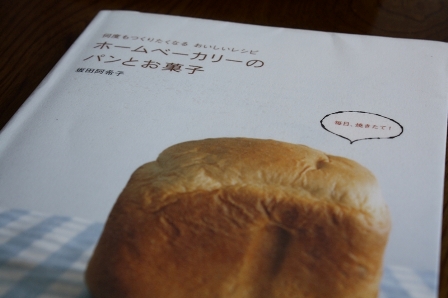 何度もつくりたくなる おいしいレシピ
ホームベーカリーの
パンとお菓子
飯田順子
毎日、焼きたて!